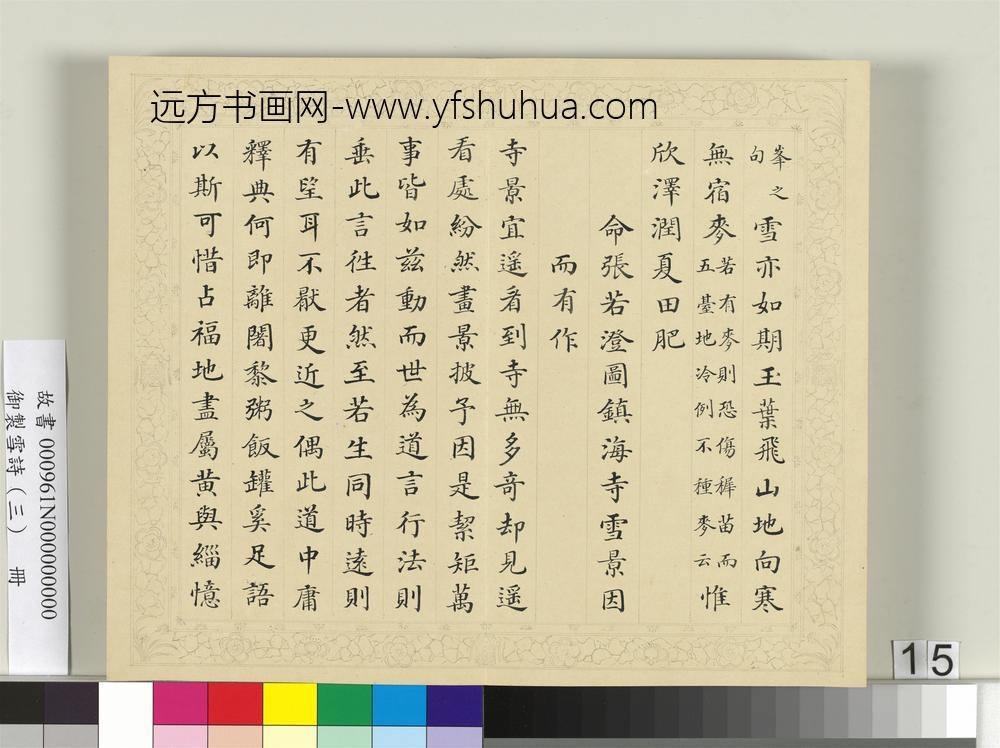 远方书画网-www.yfshuhua.com
峯之
句
雪亦如期玉葉飛山地向寒
無宿麥
若有麥則恐傷穉苗而
五臺地冷例不種麥云
惟
欣澤潤夏田肥
命張若澄圖鎮海寺雪景因
而有作
寺景宜遥看到寺無多奇却見遥
看處紛然畫景披予因是絜矩萬
事皆如茲動而世為道言行法則
垂此言徃者然至若生同時遠則
有望耳不厭更近之偶此道中庸
釋典何即離闍黎粥飯鑵奚足語
以斯可惜占福地盡屬黄與緇憶
故書 000961N000000000
御製雪詩(三) 冊
15